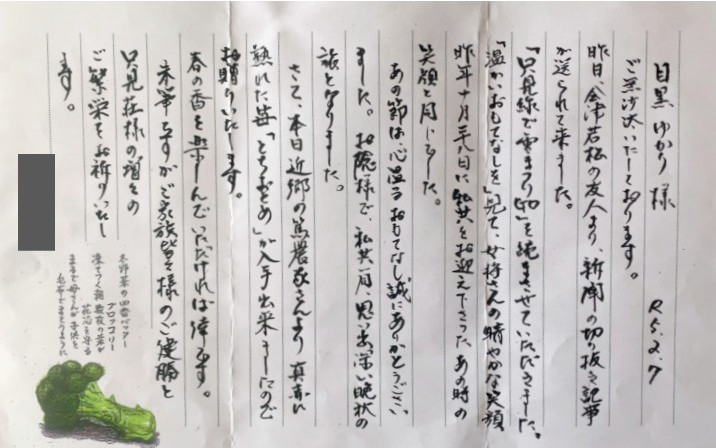 目黒ゆかり様
R5.2.7
ご無沙汰いたしております。
昨日、会津若松の友人より、新聞の切り抜き記事
が送られて来ました。
「只見線で雪まつり
を読まさせていただきました。
「温かいおもてなしを」見て、女将さんの晴やかな笑顔
昨年十月
日に私共をお迎え下さったあの時の
笑顔と同じでした。
あの節は、心温るおもてなし誠にありがとうござい
ました。お陰様で、私共一同、思い出深い晩秋の
旅となりました。
さて、本日近郷の篤農家さんより真赤に
熟れた苺「とちおとめ」が入手出来ましたので
お贈りいたします。
春の香を楽しんでいただければ幸です。
末筆ですがご家族皆々様のご健勝と
只見荘様の増々の
ご繁栄をお祈りいたし
ます。
冬野菜の四番バッター
ブロッコリー
凍てつく朝
の葉が
花芯を守る
まるで母さんが子供を
毛布でまとうように